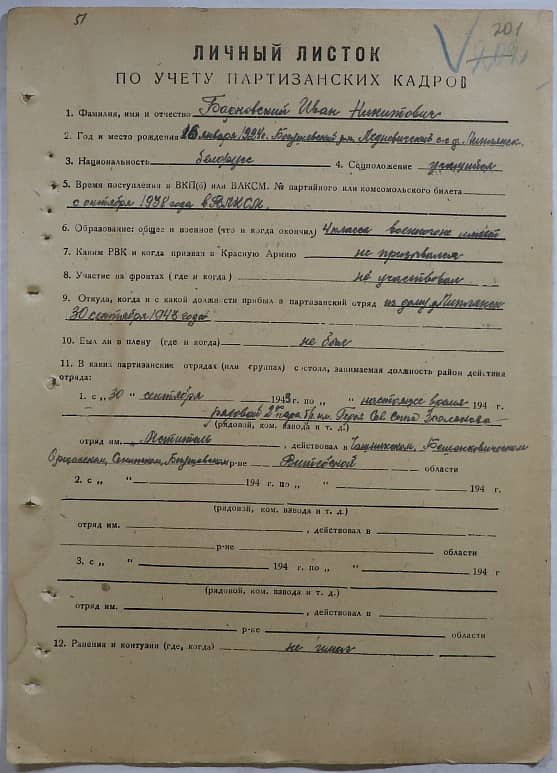 51
201
ЛИЧНЫЙ ЛИСТОК
ПО УЧЕТУ ПАРТИЗАНСКИХ КАДРОВ
1. Фамилия, имя и отчество Иван Никитович
2. Год и место рождения 16 января 1924г. Богушевский р-н с-с д.
3. Национальность белорусс 4. Соцположение учащийся
5. Время поступления в ВКП(б) или ВЛКСМ. № партийного или комсомольского билета
с октября 1938 года ВЛКСМ.
6. Образование: общее и военное (что и когда окончил) класса военного не имеет
7. Каким РВК и когда призван в Красную Армию не призывался
8. Участие на фронтах (где и когда) не участвовал
9. Откуда, когда и с какой должности прибыл в партизанский отряд из дому
30 сентября 1943 года
10. Был ли в плену (где и когда) не был
11. В каких партизанских отрядах (или группах) состоял, занимаемая должность район действия
отряда:
1. с „30 “ сентября 1943 г. по „ “ настоящее время 194 г.
рядовой 2й им. Героя Сов. Союза Заслонова
(рядовой, ком. взвода и т. д.)
отряд им. Мститель , действовал в Чашникском, Бешенковичском
Оршанском, Сенненском, Богушевском р-не Витебской области
2. с „ “ 194 г. по „ “ 194 г.
(рядовой, ком. взвода и т. д.)
отряд им. , действовал в
р-не области
3. с „ “ 194 г. по „ “ 194 г
(рядовой, ком. взвода и т. д.)
отряд им. , действовал в
р-не области
12. Ранения и контузия (где, когда) не имел